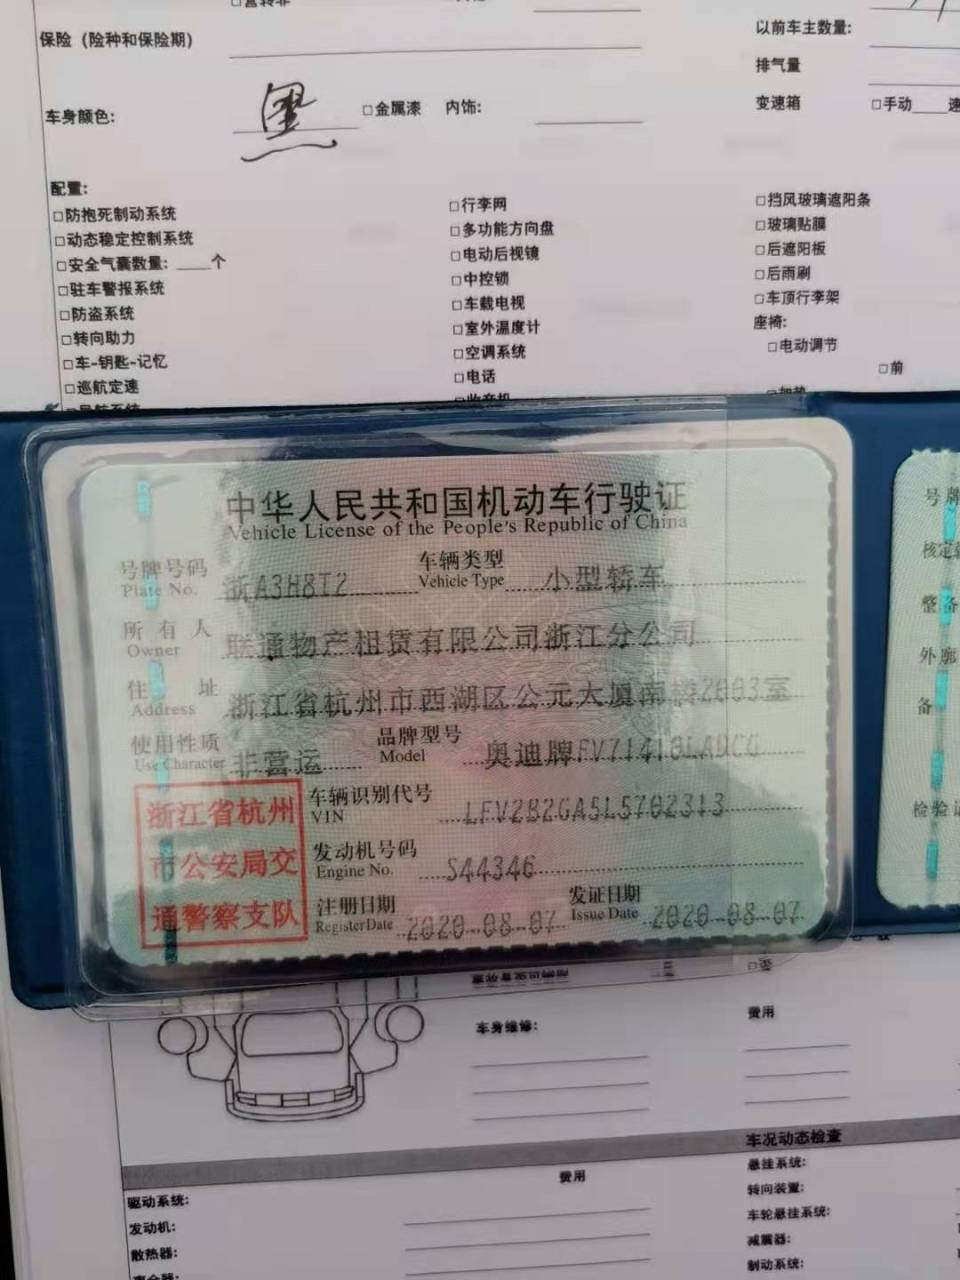 保险（险种和保险期）
以前车主数量:
排气量
车身颜色: 黑 □金属漆 内饰:
变速箱 □手动 速
配置:
□防抱死制动系统 □行李网 □挡风玻璃遮阳条
□动态稳定控制系统 □多功能方向盘 □玻璃贴膜
□安全气囊数量: 个 □电动后视镜 □后遮阳板
□驻车警报系统 □中控锁 □后雨刷
□防盗系统 □车载电视 □车顶行李架
□转向助力 □室外温度计 座椅:
□车-钥匙-记忆 □空调系统 □电动调节
□巡航定速 □电话 □前
中华人民共和国机动车行驶证
Vehicle License of the People's Republic of China
号牌号码 浙A3H8T2 车辆类型 小型轿车
Plate No. Vehicle Type
所有人 联通物产租赁有限公司浙江分公司
Owner
住址 浙江省杭州市西湖区公元大厦南楼2003室
Address
使用性质 非营运 品牌型号 奥迪牌
Use Character Model
浙江省杭州
市公安局交
通警察支队
车辆识别代号 LFV2B2GA5L5702313
VIN
发动机号码 S44346
Engine No.
注册日期 2020-08-07 发证日期 2020-08-07
Register Date Issue Date
号牌
核定
整备
外廓
备
检验记
车身维修: 费用
车况动态检查
费用 悬挂系统:
驱动系统: 转向装置:
发动机: 车轮悬挂系统:
散热器: 减震器:
制动系统: